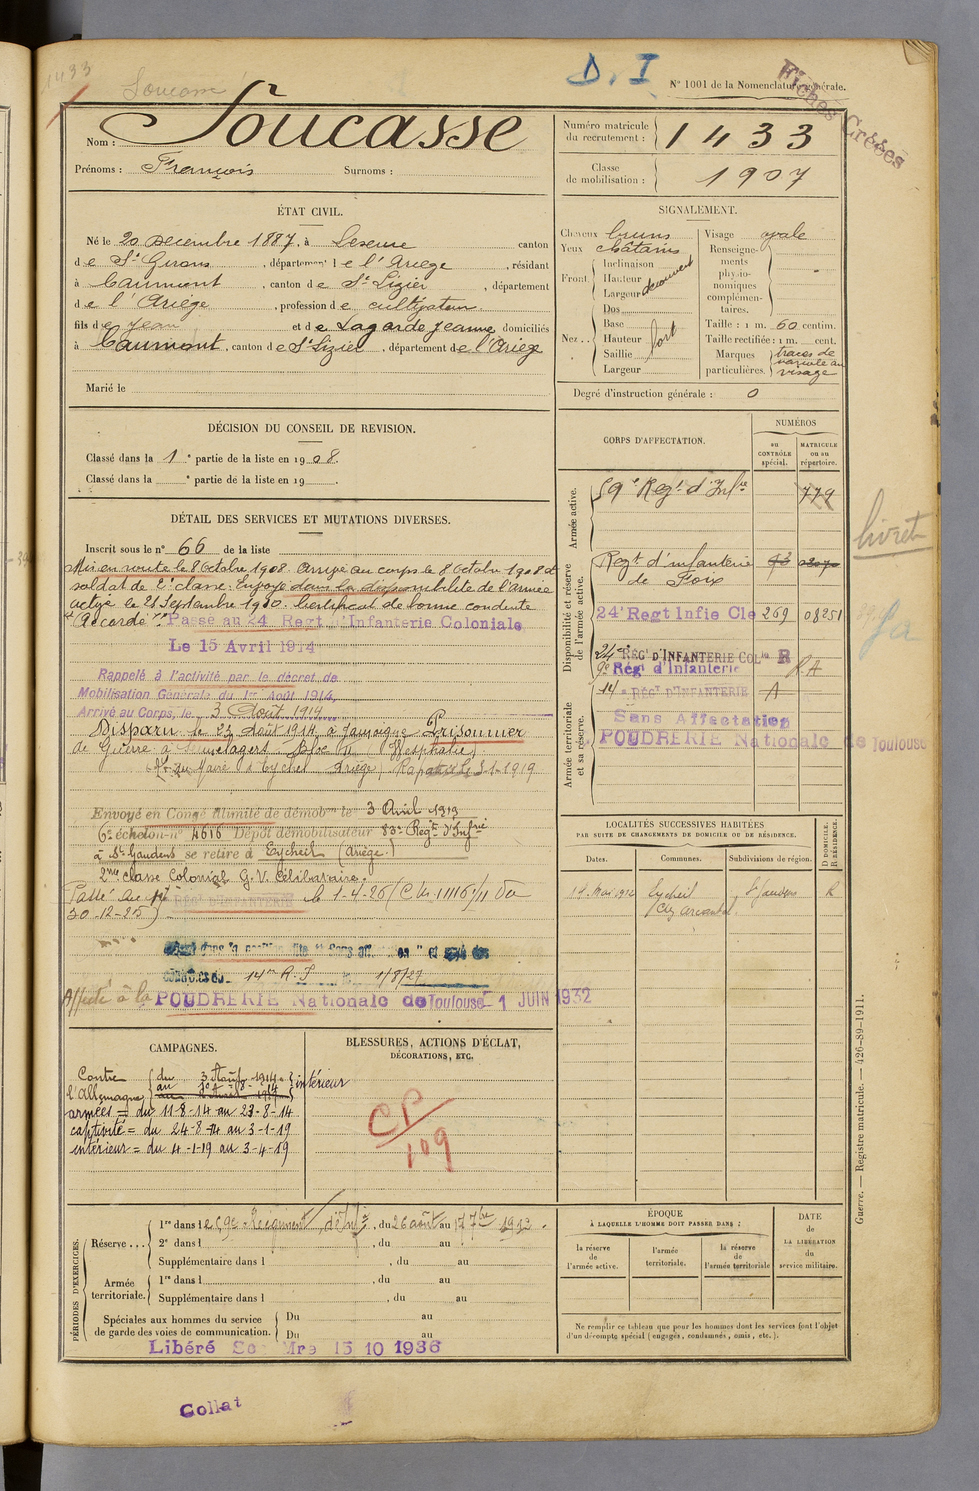 1433
Soucasse
D. I
N° 1001 de la Nomenclature générale.
Fiches Créées
Nom : Soucasse
Prénoms : François Surnoms :
Numéro matricule du recrutement : 1433
Classe de mobilisation : 1907
ÉTAT CIVIL.
Né le 20 Decembre 1887, à Lescure canton
de St Girons, département de l'Ariège, résidant
à Caumont, canton de St Lizier, département
de l'Ariège, profession de cultivateur
fils de Jean et de Lagarde Jeanne domiciliés
à Caumont, canton de St Lizier, département de l'Ariège
Marié le
SIGNALEMENT.
Cheveux bruns
Yeux châtains
Front
Inclinaison
Hauteur
Largeur
découvert
Nez
Dos
Base
Hauteur
Saillie
Largeur
fort
Visage ovale
Renseignements physionomiques complémentaires.
Taille : 1 m. 60 centim.
Taille rectifiée : 1 m. cent.
Marques particulières. traces de variole au visage
Degré d'instruction générale : 0
DÉCISION DU CONSEIL DE REVISION.
Classé dans la 1e partie de la liste en 1908.
Classé dans la e partie de la liste en 19 .
DÉTAIL DES SERVICES ET MUTATIONS DIVERSES.
Inscrit sous le n° 66 de la liste
Mis en route le 8 Octobre 1908. Arrivé au corps le 8 Octobre 1908 et
soldat de 2e classe. Envoyé dans la disponibilité de l'Armée
active le 25 Septembre 1910. Certificat de bonne conduite
"Accordé". Passé au 24 Regt d'Infanterie Coloniale
Le 15 Avril 1914
Rappelé à l'activité par le décret de
Mobilisation Générale du 1er Août 1914,
Arrivé au Corps, le 3 Août 1914
Disparu le 23 Août 1914, à Jamoigne Prisonnier
de Guerre à Bloc III (Westphalie)
du Maire d'Eycheil Ariège) Rapatrié le 3-1-1919
Envoyé en Congé illimité de démobon le 3 Avril 1919
6e échelon n° 4616 Dépôt démobilisateur 83e Regt d'Infrie
à St Gaudens se retire à Eycheil (Ariège)
2me classe Colonial G. V. Célibataire.
Passé au 14e REGt D'INFANTERIE le 1-4-26 (C. M. 11116 1/11 Du
30-12-25)
Classé dans la position dite "Sans affectation" et rayé des
contrôles du 14me R. I. le 1/8/27
Affecté à la POUDRERIE Nationale de Toulouse 1 JUIN 1932
CORPS D'AFFECTATION.
NUMÉROS
au CONTRÔLE spécial.
MATRICULE ou au répertoire.
Armée active.
59e Regt d'Infie 779
Disponibilité et réserve de l'armée active.
Regt d'infanterie de Foix
24e Regt Infie Cle 269 08251
24e REGt D'INFANTERIE COLle R
9e Régt d'Infanterie R.A
Armée territoriale et sa réserve.
14e REGt D'INFANTERIE A
Sans Affectation
POUDRERIE Nationale de Toulouse
livret
LOCALITÉS SUCCESSIVES HABITÉES
PAR SUITE DE CHANGEMENTS DE DOMICILE OU DE RÉSIDENCE.
Dates. Communes. Subdivisions de région. D DOMICILE. R RÉSIDENCE.
14 Mai 1912 Eycheil St Gaudens R
CAMPAGNES.
Contre l'Allemagne
du 3 Août 1914
au 10-8-14
intérieur
armées = du 11-8-14 au 23-8-14
captivité = du 24-8-14 au 3-1-19
intérieur = du 4-1-19 au 3-4-19
BLESSURES, ACTIONS D'ÉCLAT,
DÉCORATIONS, ETC.
CP
109
PÉRIODES D'EXERCICES.
Réserve...
1re dans le 59e Régiment d'Infie, du 26 août au 17 7bre 1913.
2e dans l , du au
Supplémentaire dans l , du au
Armée territoriale.
1re dans l , du au
Supplémentaire dans l , du au
Spéciales aux hommes du service
de garde des voies de communication.
Du au
Du au
Libéré Mre 15 10 1936
ÉPOQUE
À LAQUELLE L'HOMME DOIT PASSER DANS :
la réserve de l'armée active.
l'armée territoriale.
la réserve de l'armée territoriale
DATE DE LA LIBÉRATION du service militaire.
Ne remplir ce tableau que pour les hommes dont les services font l'objet
d'un décompte spécial (engagés, condamnés, omis, etc.).
Guerre. — Registre matricule. — 426-89-1911.
Collat